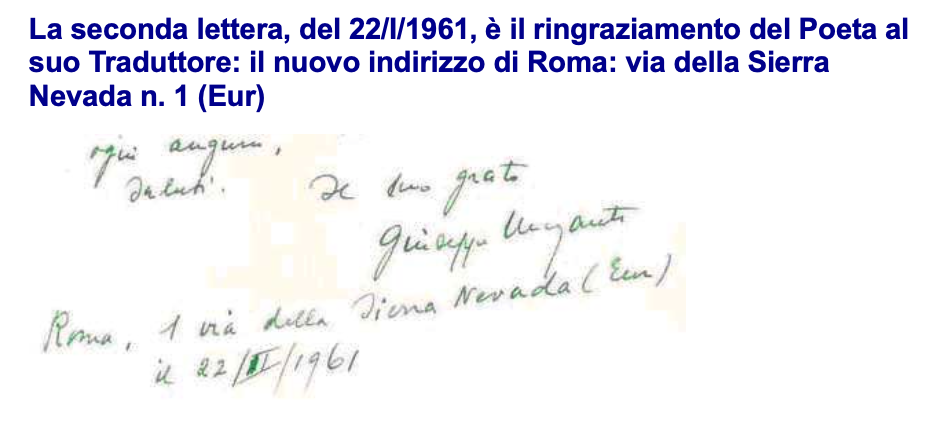 La seconda lettera, del 22/I/1961, è il ringraziamento del Poeta al
suo Traduttore: il nuovo indirizzo di Roma: via della Sierra
Nevada n. 1 (Eur)
ogni auguri,
saluti. Il suo grato
Giuseppe Ungaretti
Roma, 1 via della Sierra Nevada (Eur)
il 22/II/1961